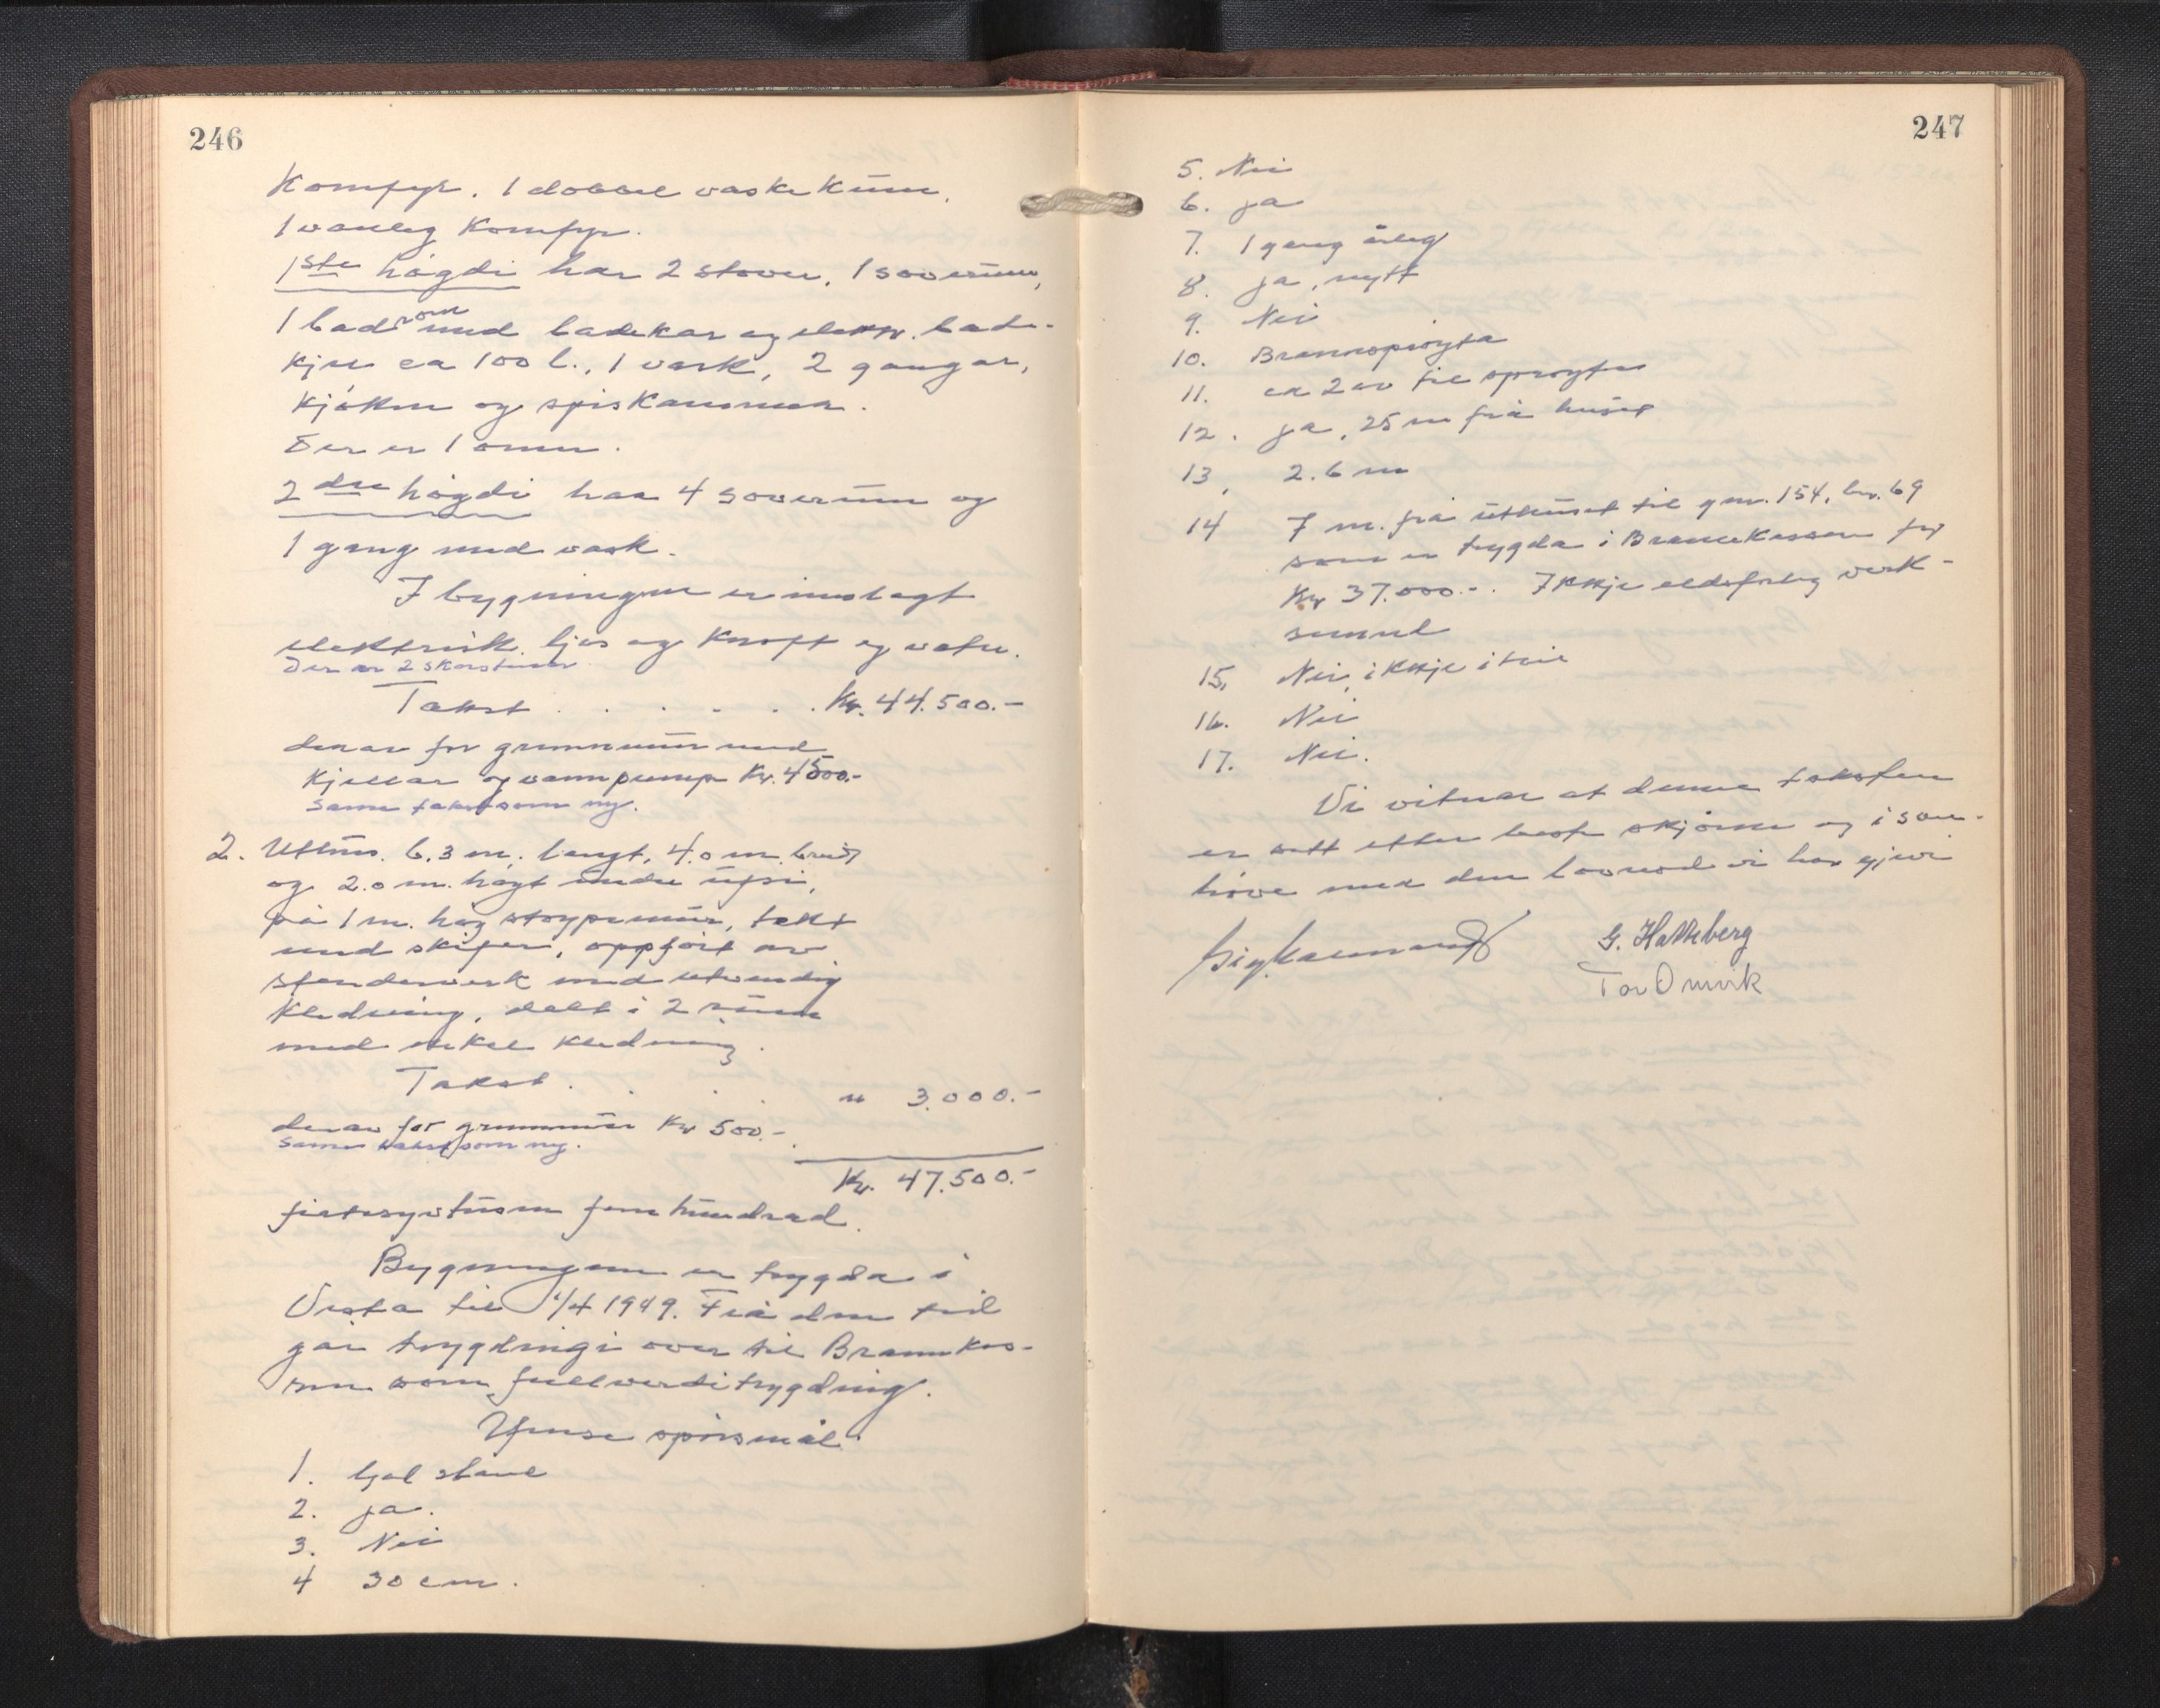 246
Komfyr. 1 dobbel vaskekum,
1 vanleg Komfyr.
1ste högdi har 2 stover, 1 soverum,
1 badrom med badekar og elektr. bade-
kjel ca 100 l., 1 vask, 2 gangar,
Kjöken og spiskammer.
Der er 1 omn.
2dre högdi har 4 soverum og
1 gang med vask.
I bygningen er innlagt
elektrisk ljos og Kraft og vatn.
Der er 2 skorsteiner
Takst . . . . . . Kr. 44.500.-
derav for grunnmur med
Kjellar og vannpump Kr. 4500.-
Same takst som ny.
2. Uthus. 6.3 m. langt, 4.0 m. breidt
og 2.0 m. högt under ufsi,
på 1 m. hög stöypemur, tekt
med skifer, oppfört av
stenderverk med utvendig
Kledning, delt i 2 rum
med enkel kledning.
Takst . . . . " 3.000.-
derav for grunnmur Kr 500.-
Same takst som ny.
Kr. 47.500.-
førtisyvtusen femhundrad.
Bygningane er trygda i
Vesta til 1/4 1949. Frå den tid
går trygdingi over til Brannkas-
sen som fullverditrygding.
Ymse spörsmål.
1. Gol stave
2. ja.
3. Nei
4 30 cm.
247
5. Nei
6. ja
7. 1 gang årleg
8. ja, nytt
9. Nei
10. Brannspröyta
11. ca 2 av til spröyta
12. ja, 25 m frå huset
13, 2.6 m
14 7 m. frå uthuset til gnr. 154, bnr. 69
som er trygda i Brannkassen for
Kr 37.000.-. Ikkje eldsfarleg verk-
semd
15, Nei, ikkje i tvil
16. Nei
17. Nei.
Vi vitnar at denne taksten
er sett etter beste skjöner og i sam-
höve med den lovnad vi har gjevi
G. Hatteberg
Tor Omvik